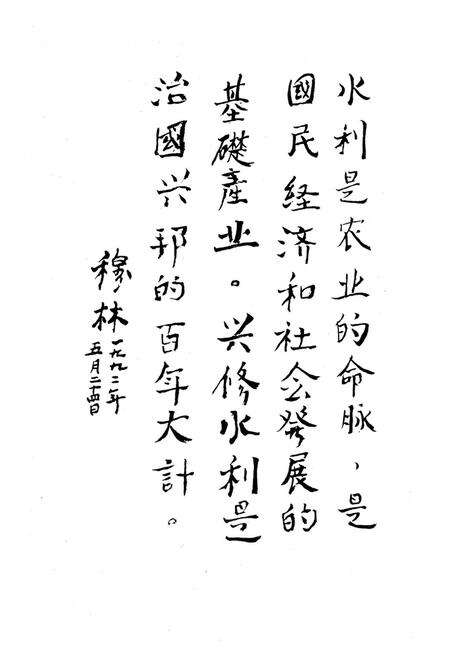 水利是农业的命脉，是
國民经济和社会發展的
基礎產业。兴修水利是
治國兴邦的百年大计。
穆林
一九九二年
五月二十四日